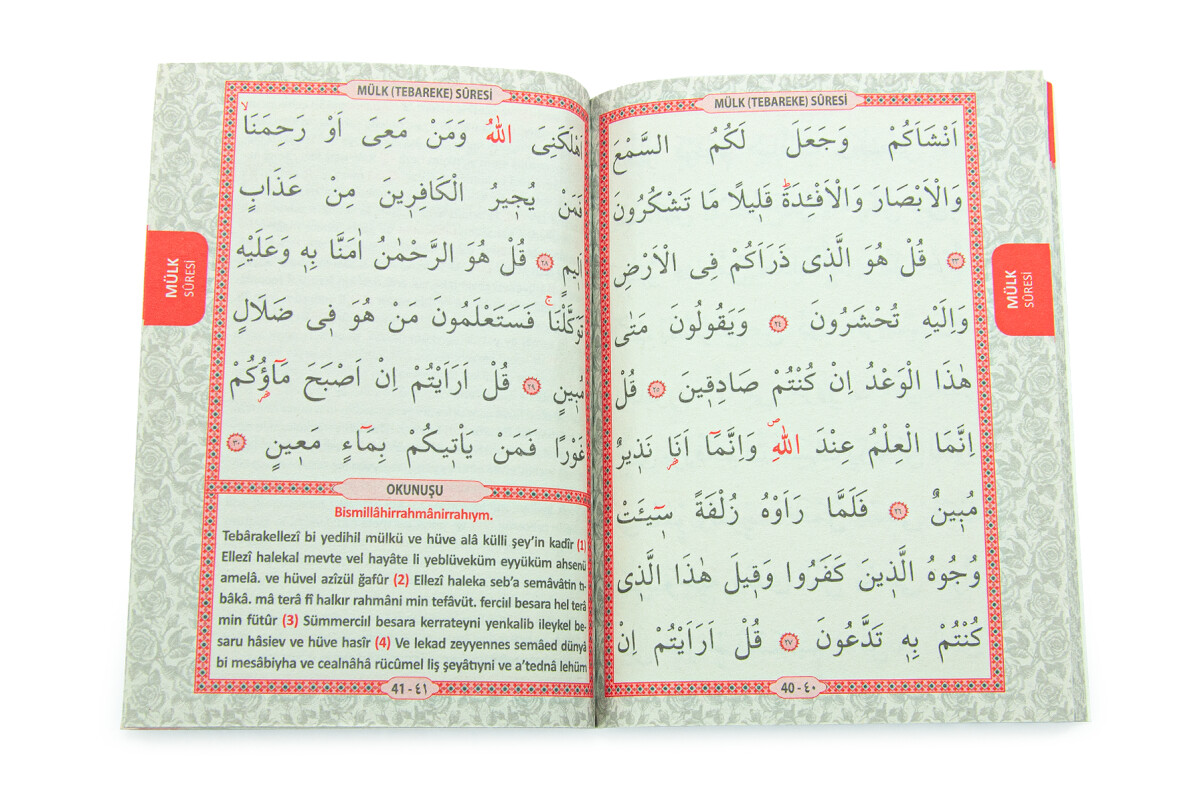 MÜLK (TEBAREKE) SÛRESİ
اَنْشَاَكُمْ وَجَعَلَ لَكُمُ السَّمْعَ
وَالْاَبْصَارَ وَالْاَفْـِٔدَةَۜ قَلٖيلًا مَا تَشْكُرُونَ
٢٣ قُلْ هُوَ الَّذٖى ذَرَاَكُمْ فِى الْاَرْضِ
وَاِلَيْهِ تُحْشَرُونَ ٢٤ وَيَقُولُونَ مَتٰى
هٰذَا الْوَعْدُ اِنْ كُنْتُمْ صَادِقٖينَ ٢٥ قُلْ
اِنَّمَا الْعِلْمُ عِنْدَ اللّٰهِۖ وَاِنَّمَٓا اَنَا۬ نَذٖيرٌ
مُبٖينٌ ٢٦ فَلَمَّا رَاَوْهُ زُلْفَةً سٖٓيـَٔتْ
وُجُوهُ الَّذٖينَ كَفَرُوا وَقٖيلَ هٰذَا الَّذٖى
كُنْتُمْ بِهٖ تَدَّعُونَ ٢٧ قُلْ اَرَاَيْتُمْ اِنْ
40 - ٤٠
MÜLK
SÛRESİ
MÜLK (TEBAREKE) SÛRESİ
اَهْلَكَنِىَ اللّٰهُ وَمَنْ مَعِىَ اَوْ رَحِمَنَاۙ
فَمَنْ يُجٖيرُ الْكَافِرٖينَ مِنْ عَذَابٍ
اَلٖيمٍ ٢٨ قُلْ هُوَ الرَّحْمٰنُ اٰمَنَّا بِهٖ وَعَلَيْهِ
تَوَكَّلْنَاۚ فَسَتَعْلَمُونَ مَنْ هُوَ فٖى ضَلَالٍ
مُبٖينٍ ٢٩ قُلْ اَرَاَيْتُمْ اِنْ اَصْبَحَ مَٓاؤُ۬كُمْ
غَوْرًا فَمَنْ يَاْتٖيكُمْ بِمَٓاءٍ مَعٖينٍ ٣٠
OKUNUŞU
Bismillâhirrahmânirrahıym.
Tebârakellezî bi yedihil mülkü ve hüve alâ külli şey’in kadîr (1)
Ellezî halekal mevte vel hayâte li yeblüveküm eyyüküm ahsenü
amelâ. ve hüvel azîzül ğafûr (2) Ellezî haleka seb’a semâvâtin tı-
bâkâ. mâ terâ fî halkır rahmâni min tefâvüt. ferciıl besara hel terâ
min fütûr (3) Sümmerciıl besara kerrateyni yenkalib ileykel be-
saru hâsiev ve hüve hasîr (4) Ve lekad zeyyennes semâed dünyâ
bi mesâbiyha ve cealnâhâ rücûmel liş şeyâtıyni ve a’tednâ lehüm
41 - ٤١
MÜLK
SÛRESİ